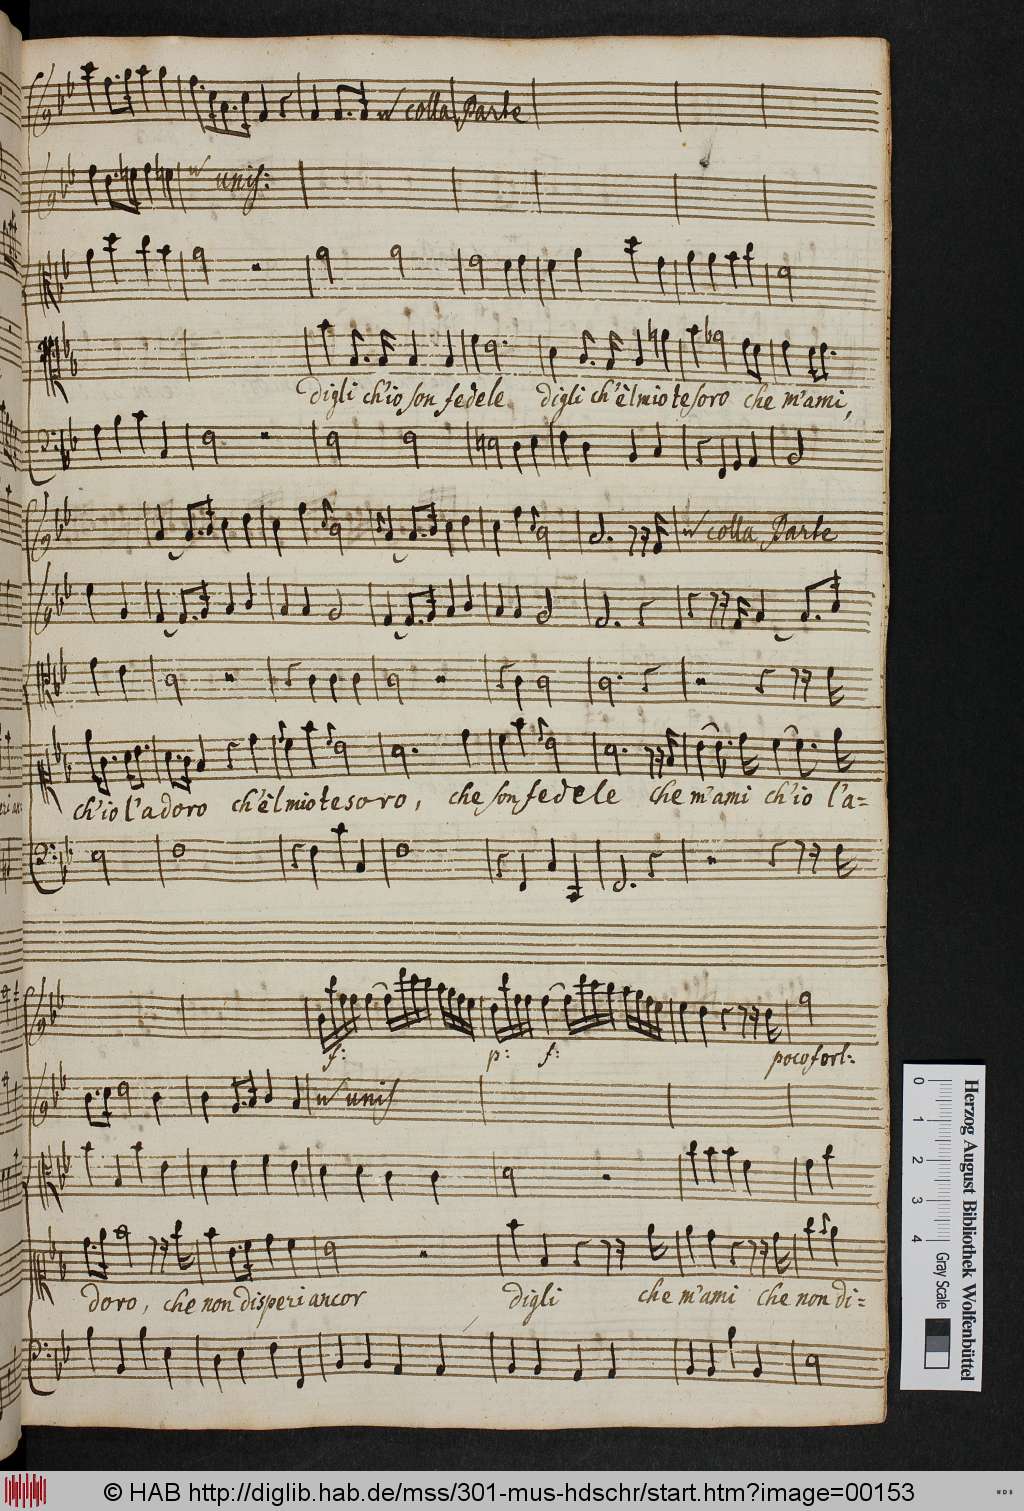 colla Parte
unis:
digli ch'io son fedele digli ch'è'l mio tesoro che m'ami,
colla Parte
ch'io l'adoro ch'è'l mio tesoro, che son fedele che m'ami ch'io l'a=
f: p: f: poco fort:
unis
doro, che non disperi ancor digli che m'ami che non di=
Herzog August Bibliothek Wolfenbüttel
0 1 2 3 4 Gray Scale
© HAB http://diglib.hab.de/mss/301-mus-hdschr/start.htm?image=00153